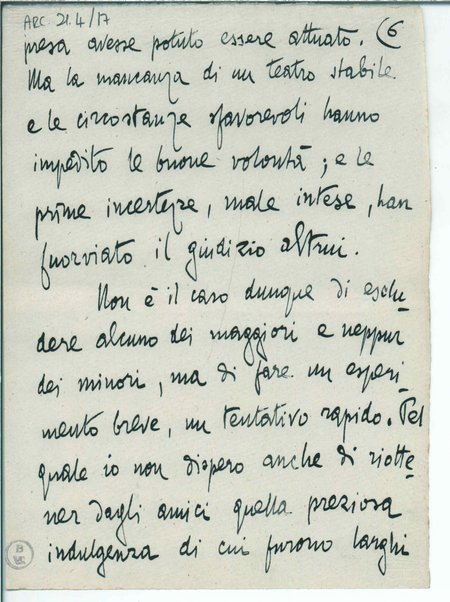 ARC. 21.4/17
presa avesse potuto essere attuato. (6
Ma la mancanza di un teatro stabile
e le circostanze sfavorevoli hanno
impedito le buone volontà; e le
prime incertezze, male intese, han
fuorviato il giudizio altrui.
Non è il caso dunque di esclu-
dere alcuno dei maggiori e neppur
dei minori, ma di fare un esperi-
mento breve, un tentativo rapido. Pel
quale io non dispero anche di riotte-
ner dagli amici quella preziosa
indulgenza di cui furono larghi